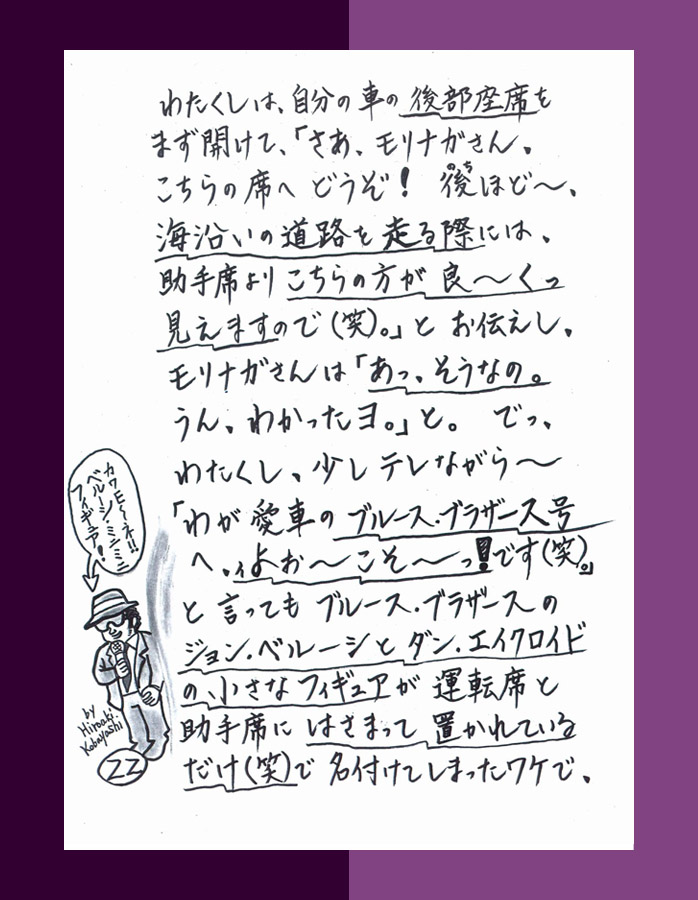 わたくしは、自分の車の後部座席を
まず開けて、「さあ、モリナガさん。
こちらの席へどうぞ! 後ほど〜、
のち
海沿いの道路を走る際には、
助手席よりこちらの方が良〜くっ
見えますので(笑)。」とお伝えし。
モリナガさんは「あっ、そうなの。
うん、わかったヨ。」と。 でっ、
わたくし、少しテレながら〜
「わが愛車のブルース・ブラザース号
へ、よぉ〜こそ〜っ!です(笑)。」
と言ってもブルース・ブラザースの
ジョン・ベルーシとダン・エイクロイド
の、小さなフィギュアが運転席と
助手席にはさまって置かれている
だけ(笑)で名付けてしまったワケで。
カワエ〜ネ!!
ベルーシ・ミニミニ
フィギュア!
by
Hiroaki
Kobayashi
22